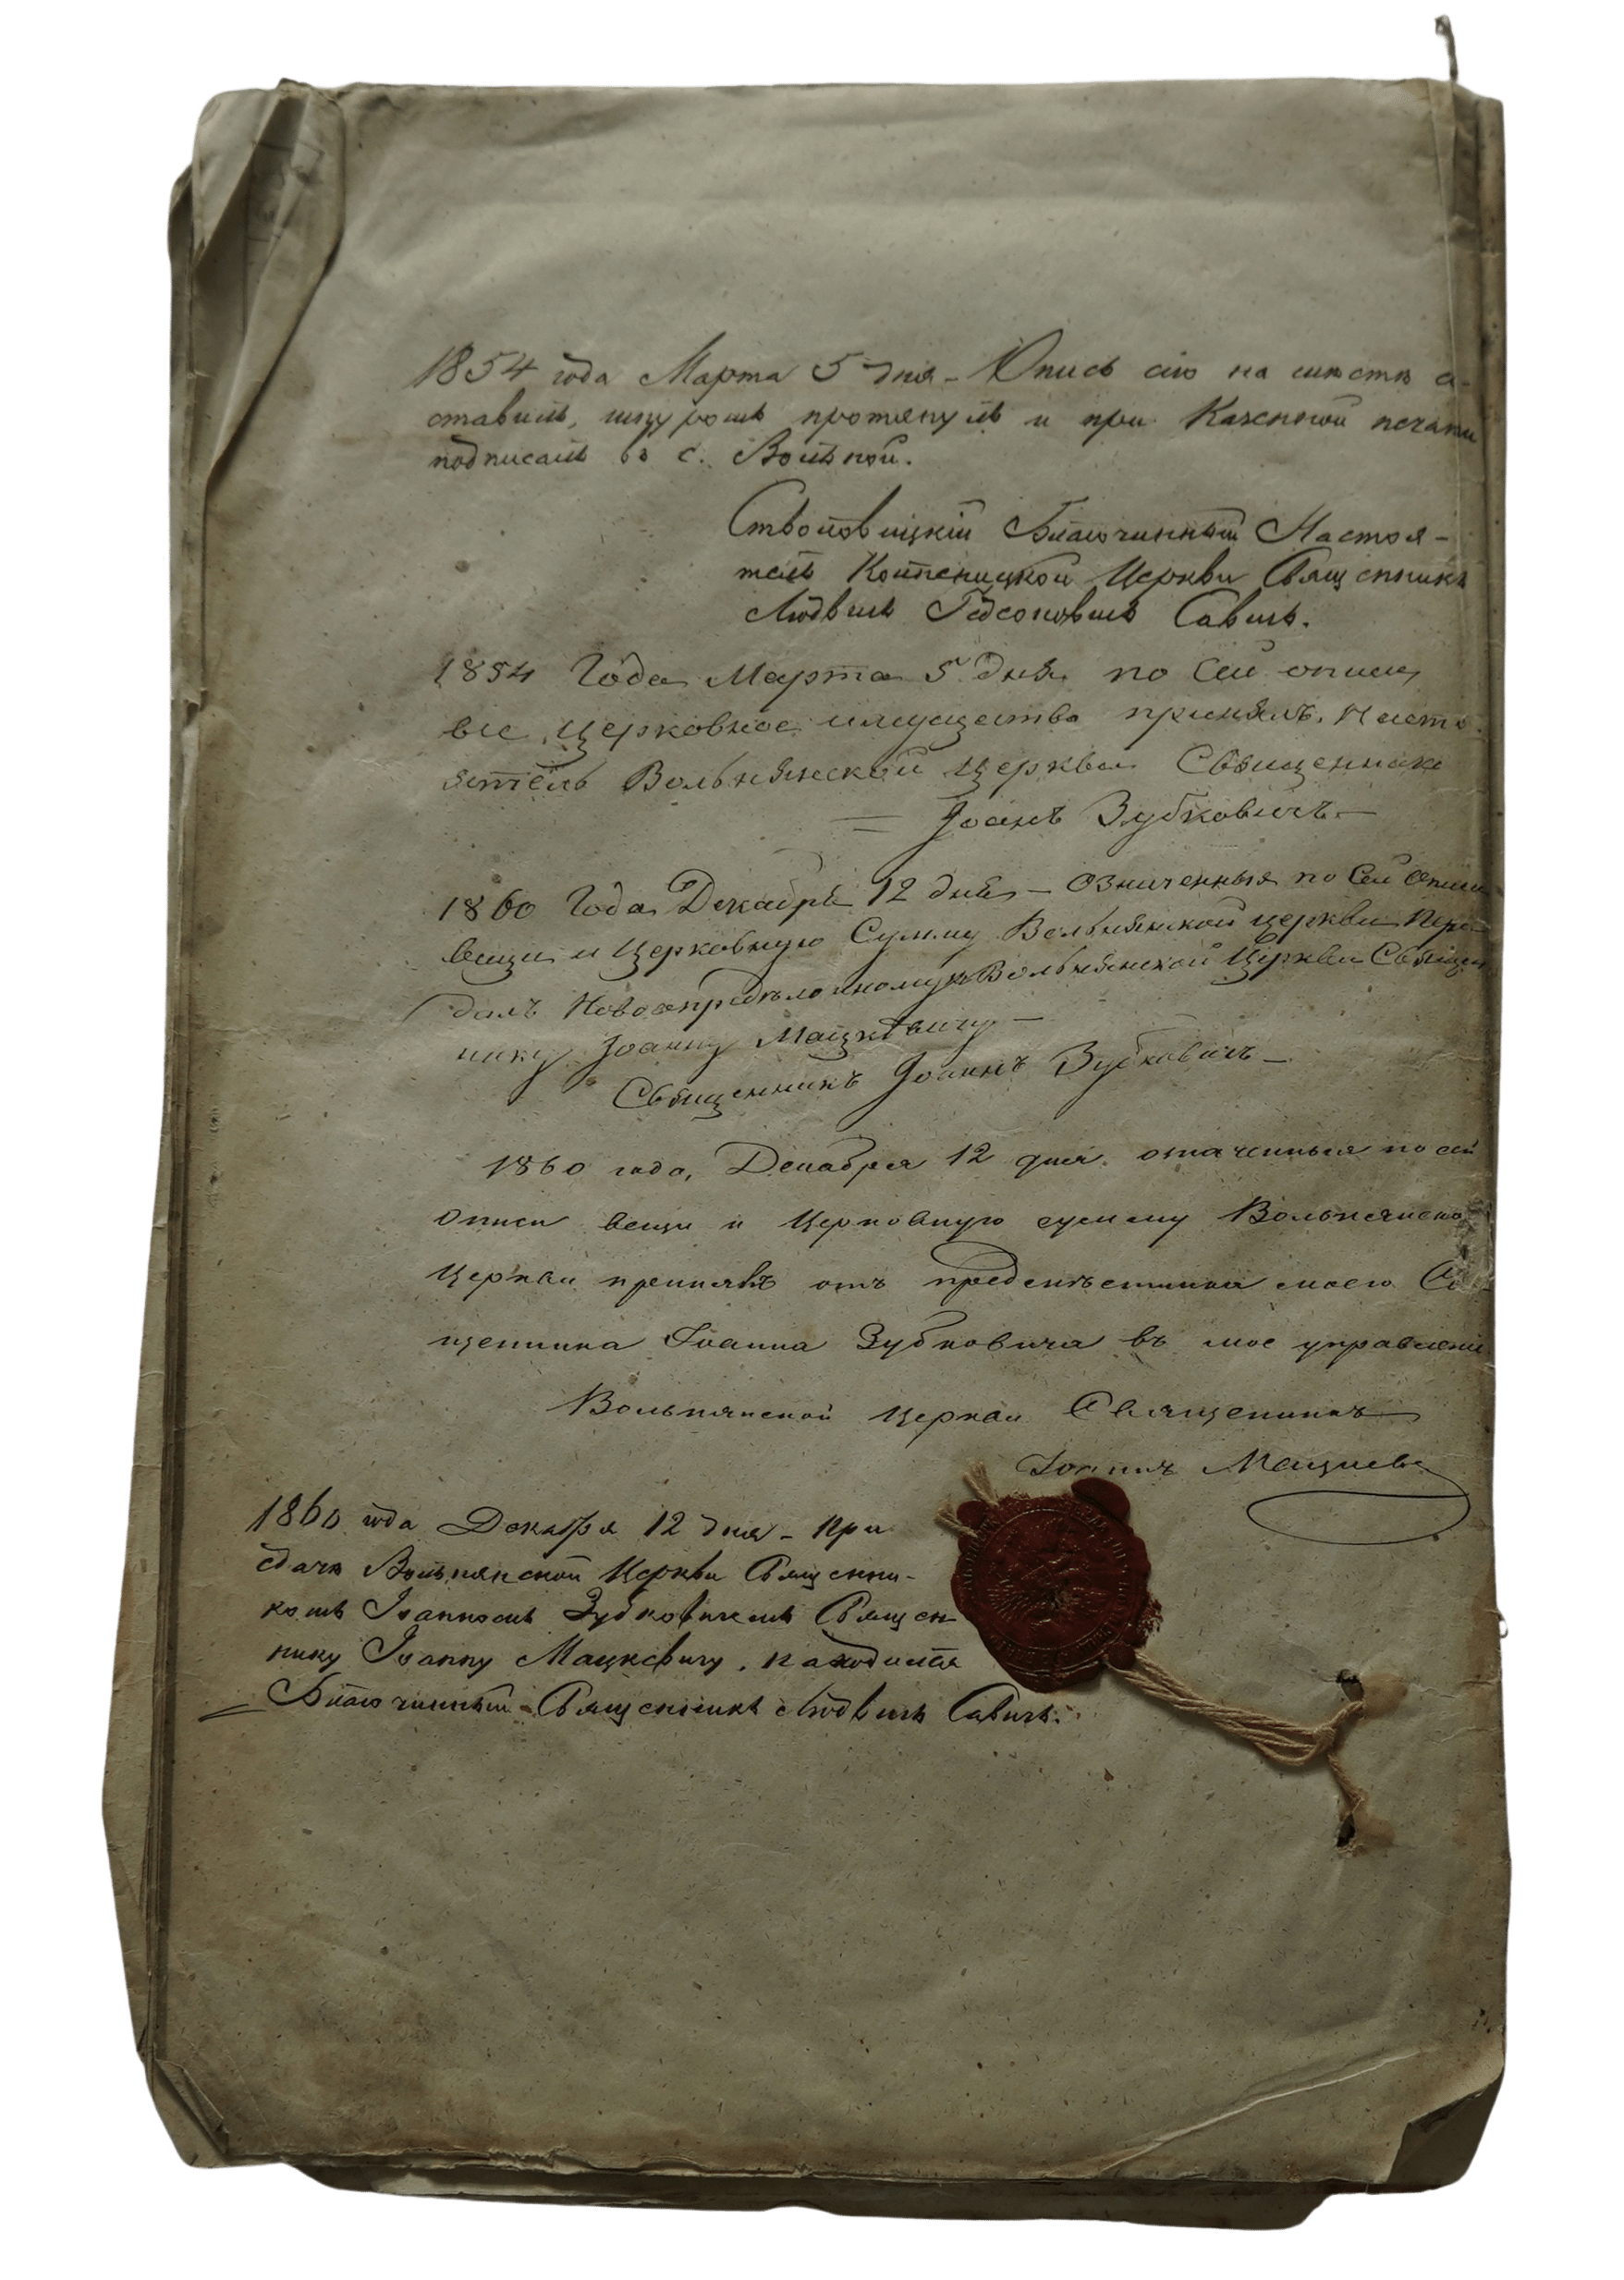 1854 года Марта 5 дня - Опись сію на мѣстѣ со-
ставилъ, шнуромъ протянулъ и при Казенной печати
подписалъ въ с. Вольной.
Столовицкій Благочинный Настоя-
тель Церкви Священникъ
Людвигъ Савичъ.
1854 Года Марта 5 дня по Сей описи
все Церковное имущество принялъ. Насто-
ятель Вольнянской Церкви Священникъ
Іоанъ Зубковичъ -
1860 Года Декабря 12 дня - Означенныя по Сей Описи
вещи и Церковную Сумму Вольнянской церкви Пере-
далъ Новоопредѣленному къ Вольнянской Церкви Священ
нику Іоанну Мацкевичу -
Священникъ Іоаннъ Зубковичъ -
1860 года, Декабря 12 дня. означенныя по сей
описи вещи и Церковную сумму Вольнянской
Церкви принявъ отъ предмѣстника моего Свя
щенника Іоанна Зубковича въ мое управленіе
Вольнянской Церкви Священникъ
Іоаннъ Мацкевичъ
1860 года Декабря 12 дня - При
сдачѣ Вольнянской Церкви Священни-
комъ Іоанномъ Зубковичемъ Священ-
нику Іоанну Мацкевичу, находился
Благочинный Священникъ Людвигъ Савичъ.